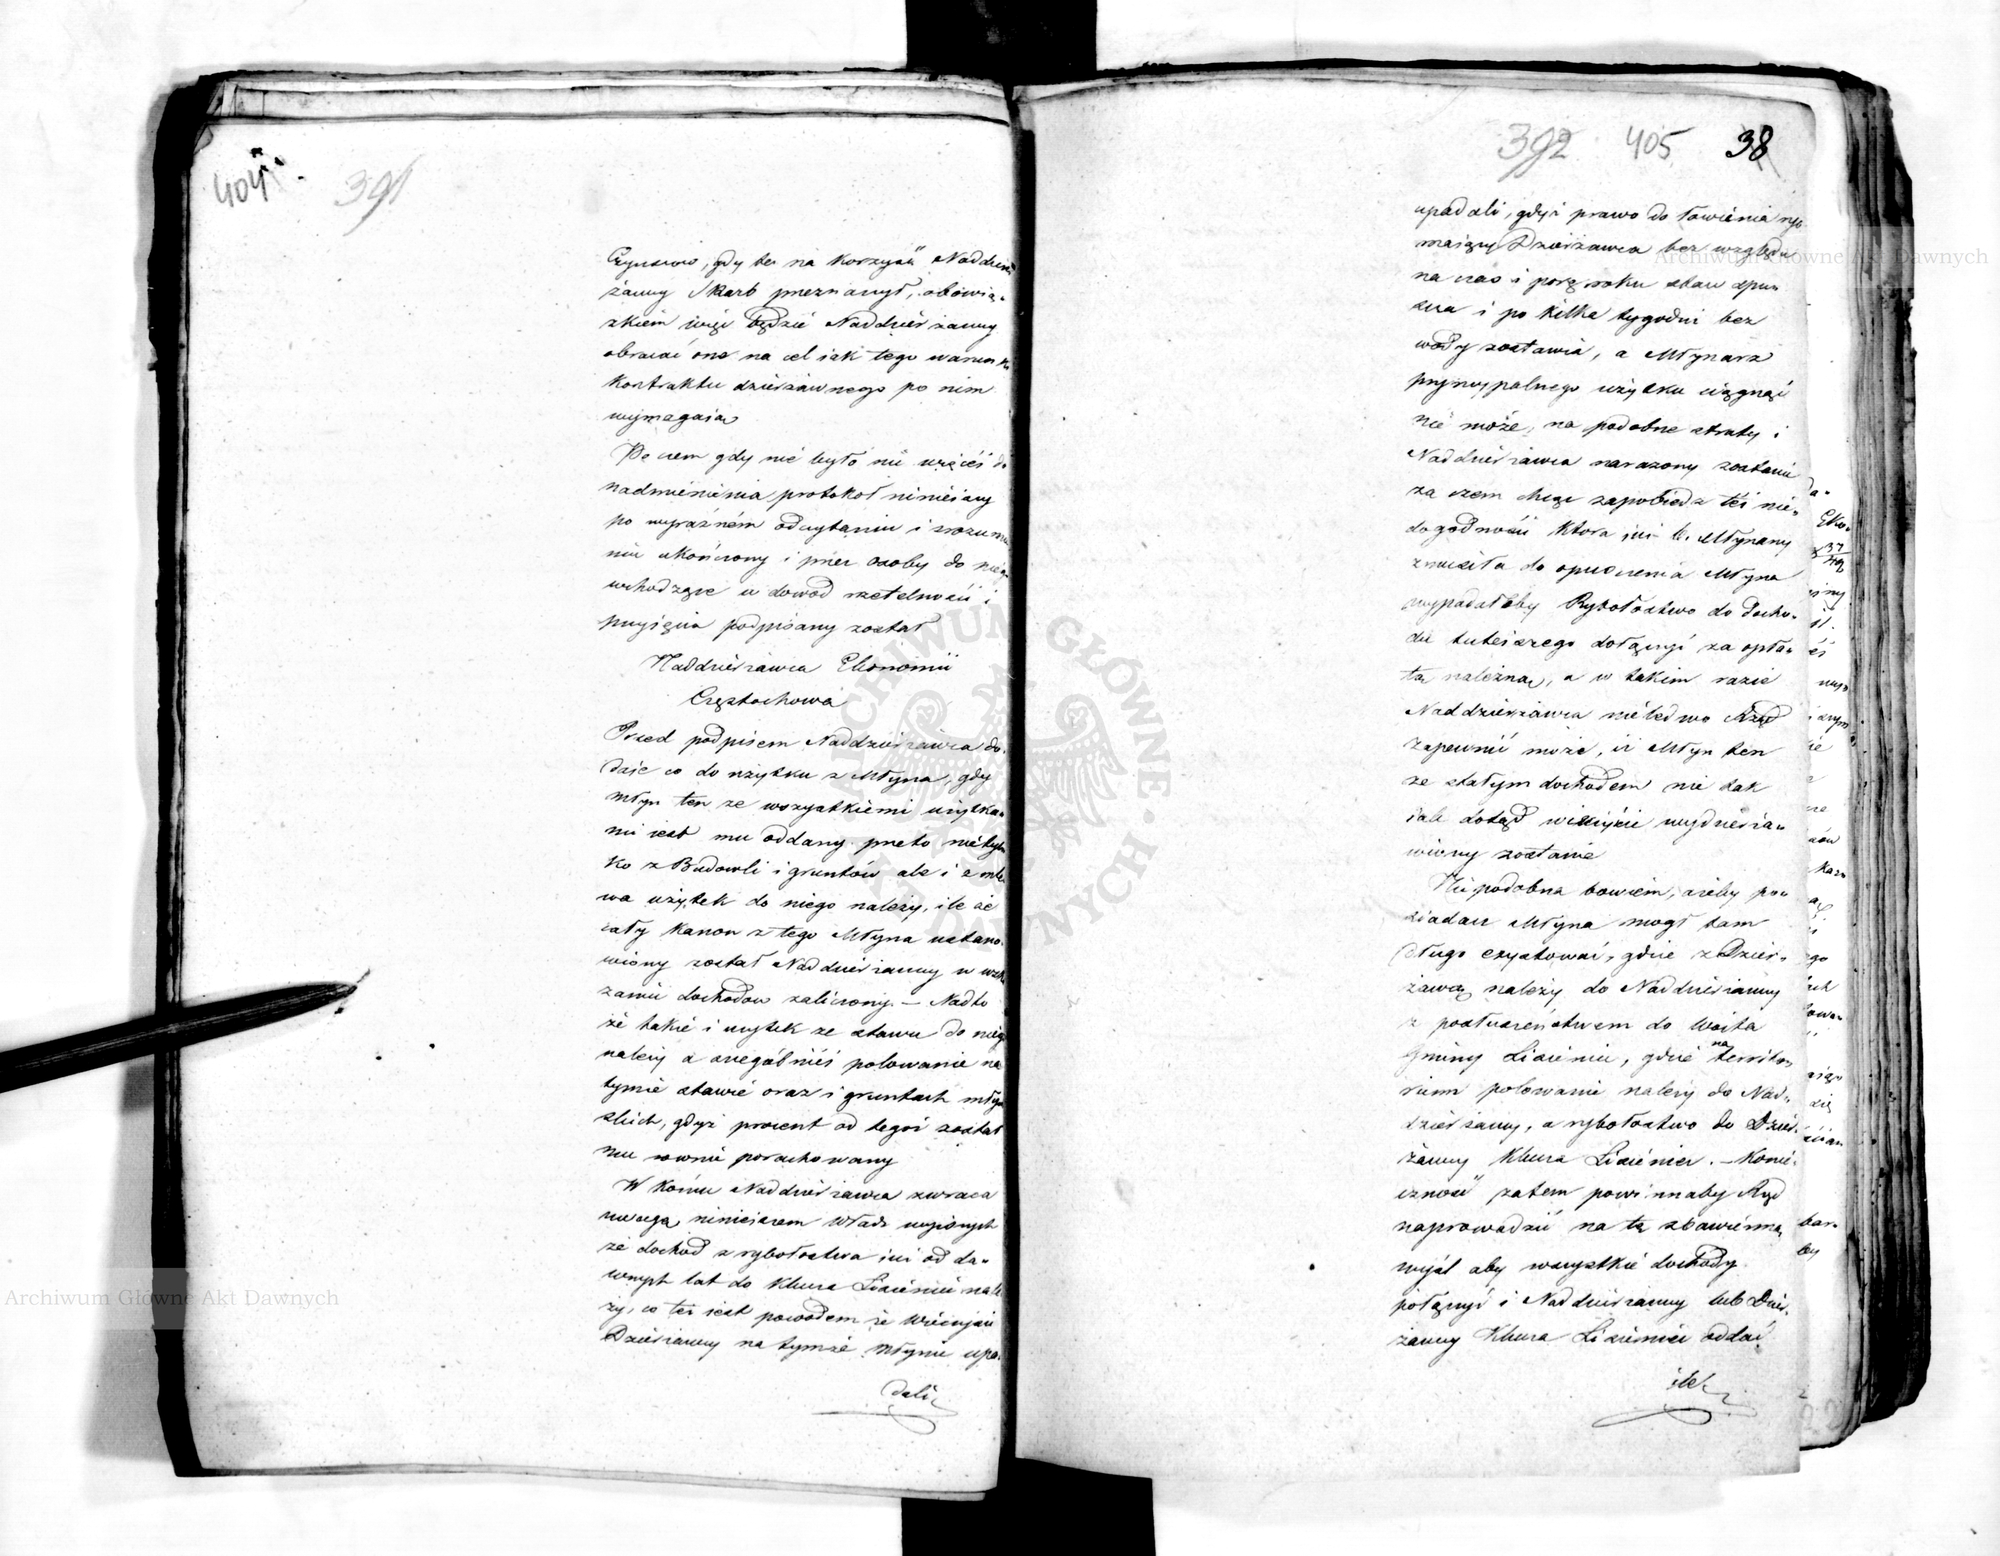 404
391
Czynszowe, gdy te na korzyść Naddzier
żawcy Skarb przeznaczył, obowią-
zkiem więc będzie Naddzierżawcy
obracać one na cel iak tego warunki
kontraktu dzierżawnego po nim
wymagaią
Po czem gdy nic było nic więcéj do
nadmienienia protokół niniéjszy
po wyraźném odczytaniu i zrozumie
niu ukończony i przez osoby do niego
wchodzące w dowód rzetelności i
przyjęcia podpisany został
Naddzierżawca Ekonomii
Częstochowa
Przed podpisem Naddzierżawca do-
daie co do użytku z Młyna, gdy
młyn ten ze wszystkiemi użytka-
mi iest mu oddany przeto nietyl
ko z Budowli i gruntów ale i z mle
wa użytek do niego należy, ile że
cały kanon z tego Młyna ustano-
wiony został Naddzierżawcy w
zamie dochodów zaliczony. — Nadto
że także i użytek ze stawu do niego
należy a szczególniéj polowanie na
tymże stawie oraz i gruntach młyn
skich, gdyż procent od tegoż został
mu równie porachowany
W końcu Naddzierżawca zwraca
uwagę niniejszem Władz wyższych
że dochód z rybołostwa już od da-
wnych lat do Klucza Lisieniec nale
ży, co też iest powodem że Wieczyści
Dzierżawcy na tymże Młynie upa-
dali
392 405 38
upadali, gdyż prawo do łowienia ryb
maiący Dzierżawca bez względu
na czas i porę roku staw spu-
szcza i po kilka tygodni bez
wody zostawia, a Młynarz
pryncypalnego użytku ciągnąć
nie może, na podobne straty i
Naddzierżawca narażony zostanie
za czem chcąc zapobiedz téj nie-
dogodności która już b. Młynarzy
zmusiła do opuszczenia Młyna
wypadałoby Rybołostwo do Docho-
du tutéjszego dołączyć za opła-
tą należną, a w takim razie
Naddzierżawca nieledwo Rząd
zapewnić może, iż Młyn ten
ze stałym dochodem nie tak
iak dotąd wieczyście wydzierża-
wiony zostanie
Nie podobna bowiem, ażeby po-
siadacz Młyna mógł tam
długo exystować, gdzie z Dzier-
żawą należy do Naddzierżawcy
z posłuszeństwem do Wójta
Gminy Lisieniec, gdzie na territo-
rium polowanie należy do Nad-
dzierżawcy, a rybołostwo do Dzier-
żawcy Klucza Lisieniec. — Konie-
czność zatem powinnaby Rząd
naprowadzić na tę zbawienną
myśl aby wszystkie dochody
połączyć i Naddzierżawcy lub Dzier-
żawcy Klucza Lisieniec oddać
ile